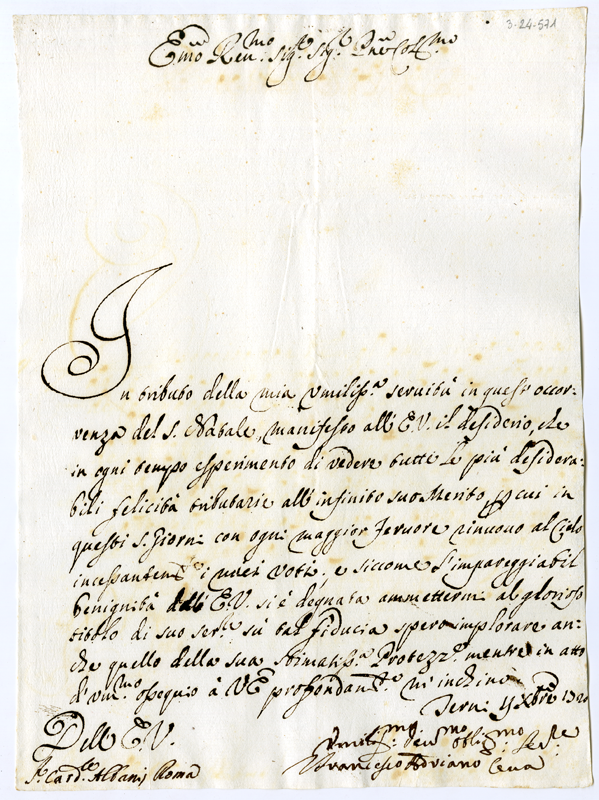 3-24-571
Emo Revmo Sigr Sigr Pne Colmo
In tributo della mia umilissa servitù in quest'occor=
renza del S. Natale, manifesto all'E.V. il desiderio, che
in ogni tempo esperimento di vedere tutte le più desidera=
bili felicità tributarie all'infinito suo Merito, p cui in
questi S. Giorni con ogni maggior fervore rinuovo al Cielo
incessantente i miei voti. e siccome l'impareggiabil
benignità dell'E.V. si è degnata ammettermi al glorioso
titolo di suo serre sù tal fiducia spero implorare an=
che quello della sua stimatissa Protezze mentre in atto
di vmmo ossequio à VE profondante m'inchino
Terni Xbre
Dell'E.V.
Umilmo Devmo Obligmo Serre
Sr Cardle Albani Roma
Francesco Adriano